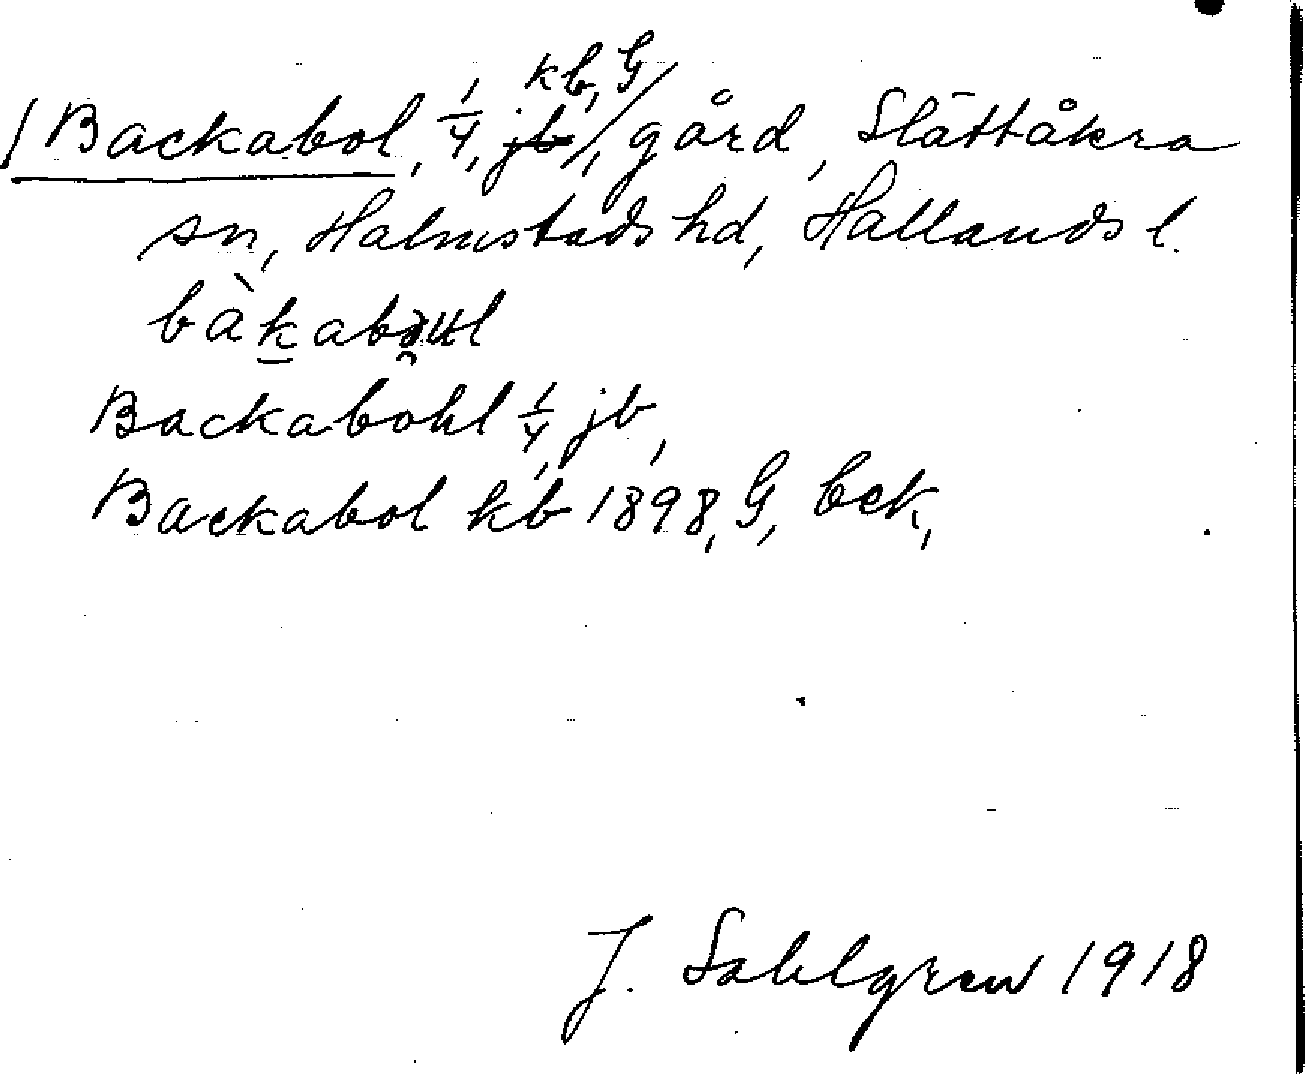 kb, G
/Backabol, 1/4, jb/, gård, Slättåkra
sn, Halmstads hd, Hallands l.
Backabohl 1/4, jb,
Backabol kb 1898, G, bek,
J. Sahlgren 1918